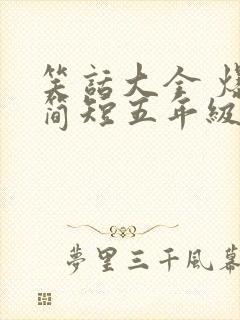 笑話大全 爆
简短五年級
夢里三千風幕